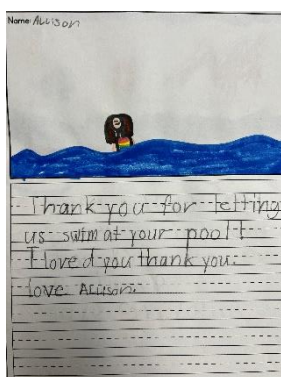 Name: Allison
Thank you for letting
us swim at your pool!
I loved you thank you.
love Allison.